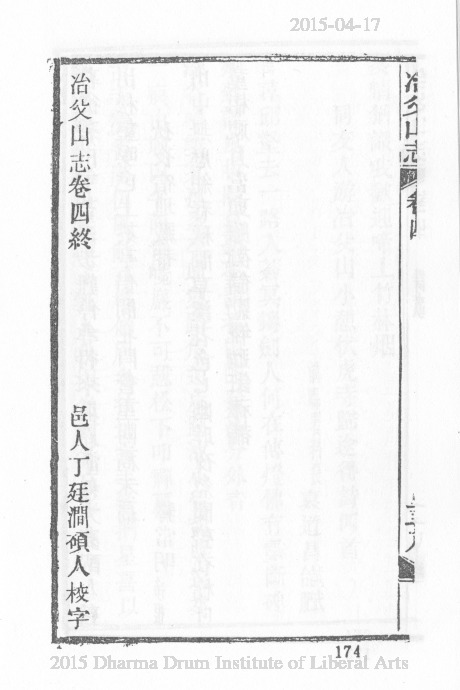 2015-04-17
冶父山志
卷四
冶父山志卷四終
邑人丁廷澗碩人校字
174
2015 Dharma Drum Institute of Liberal Arts